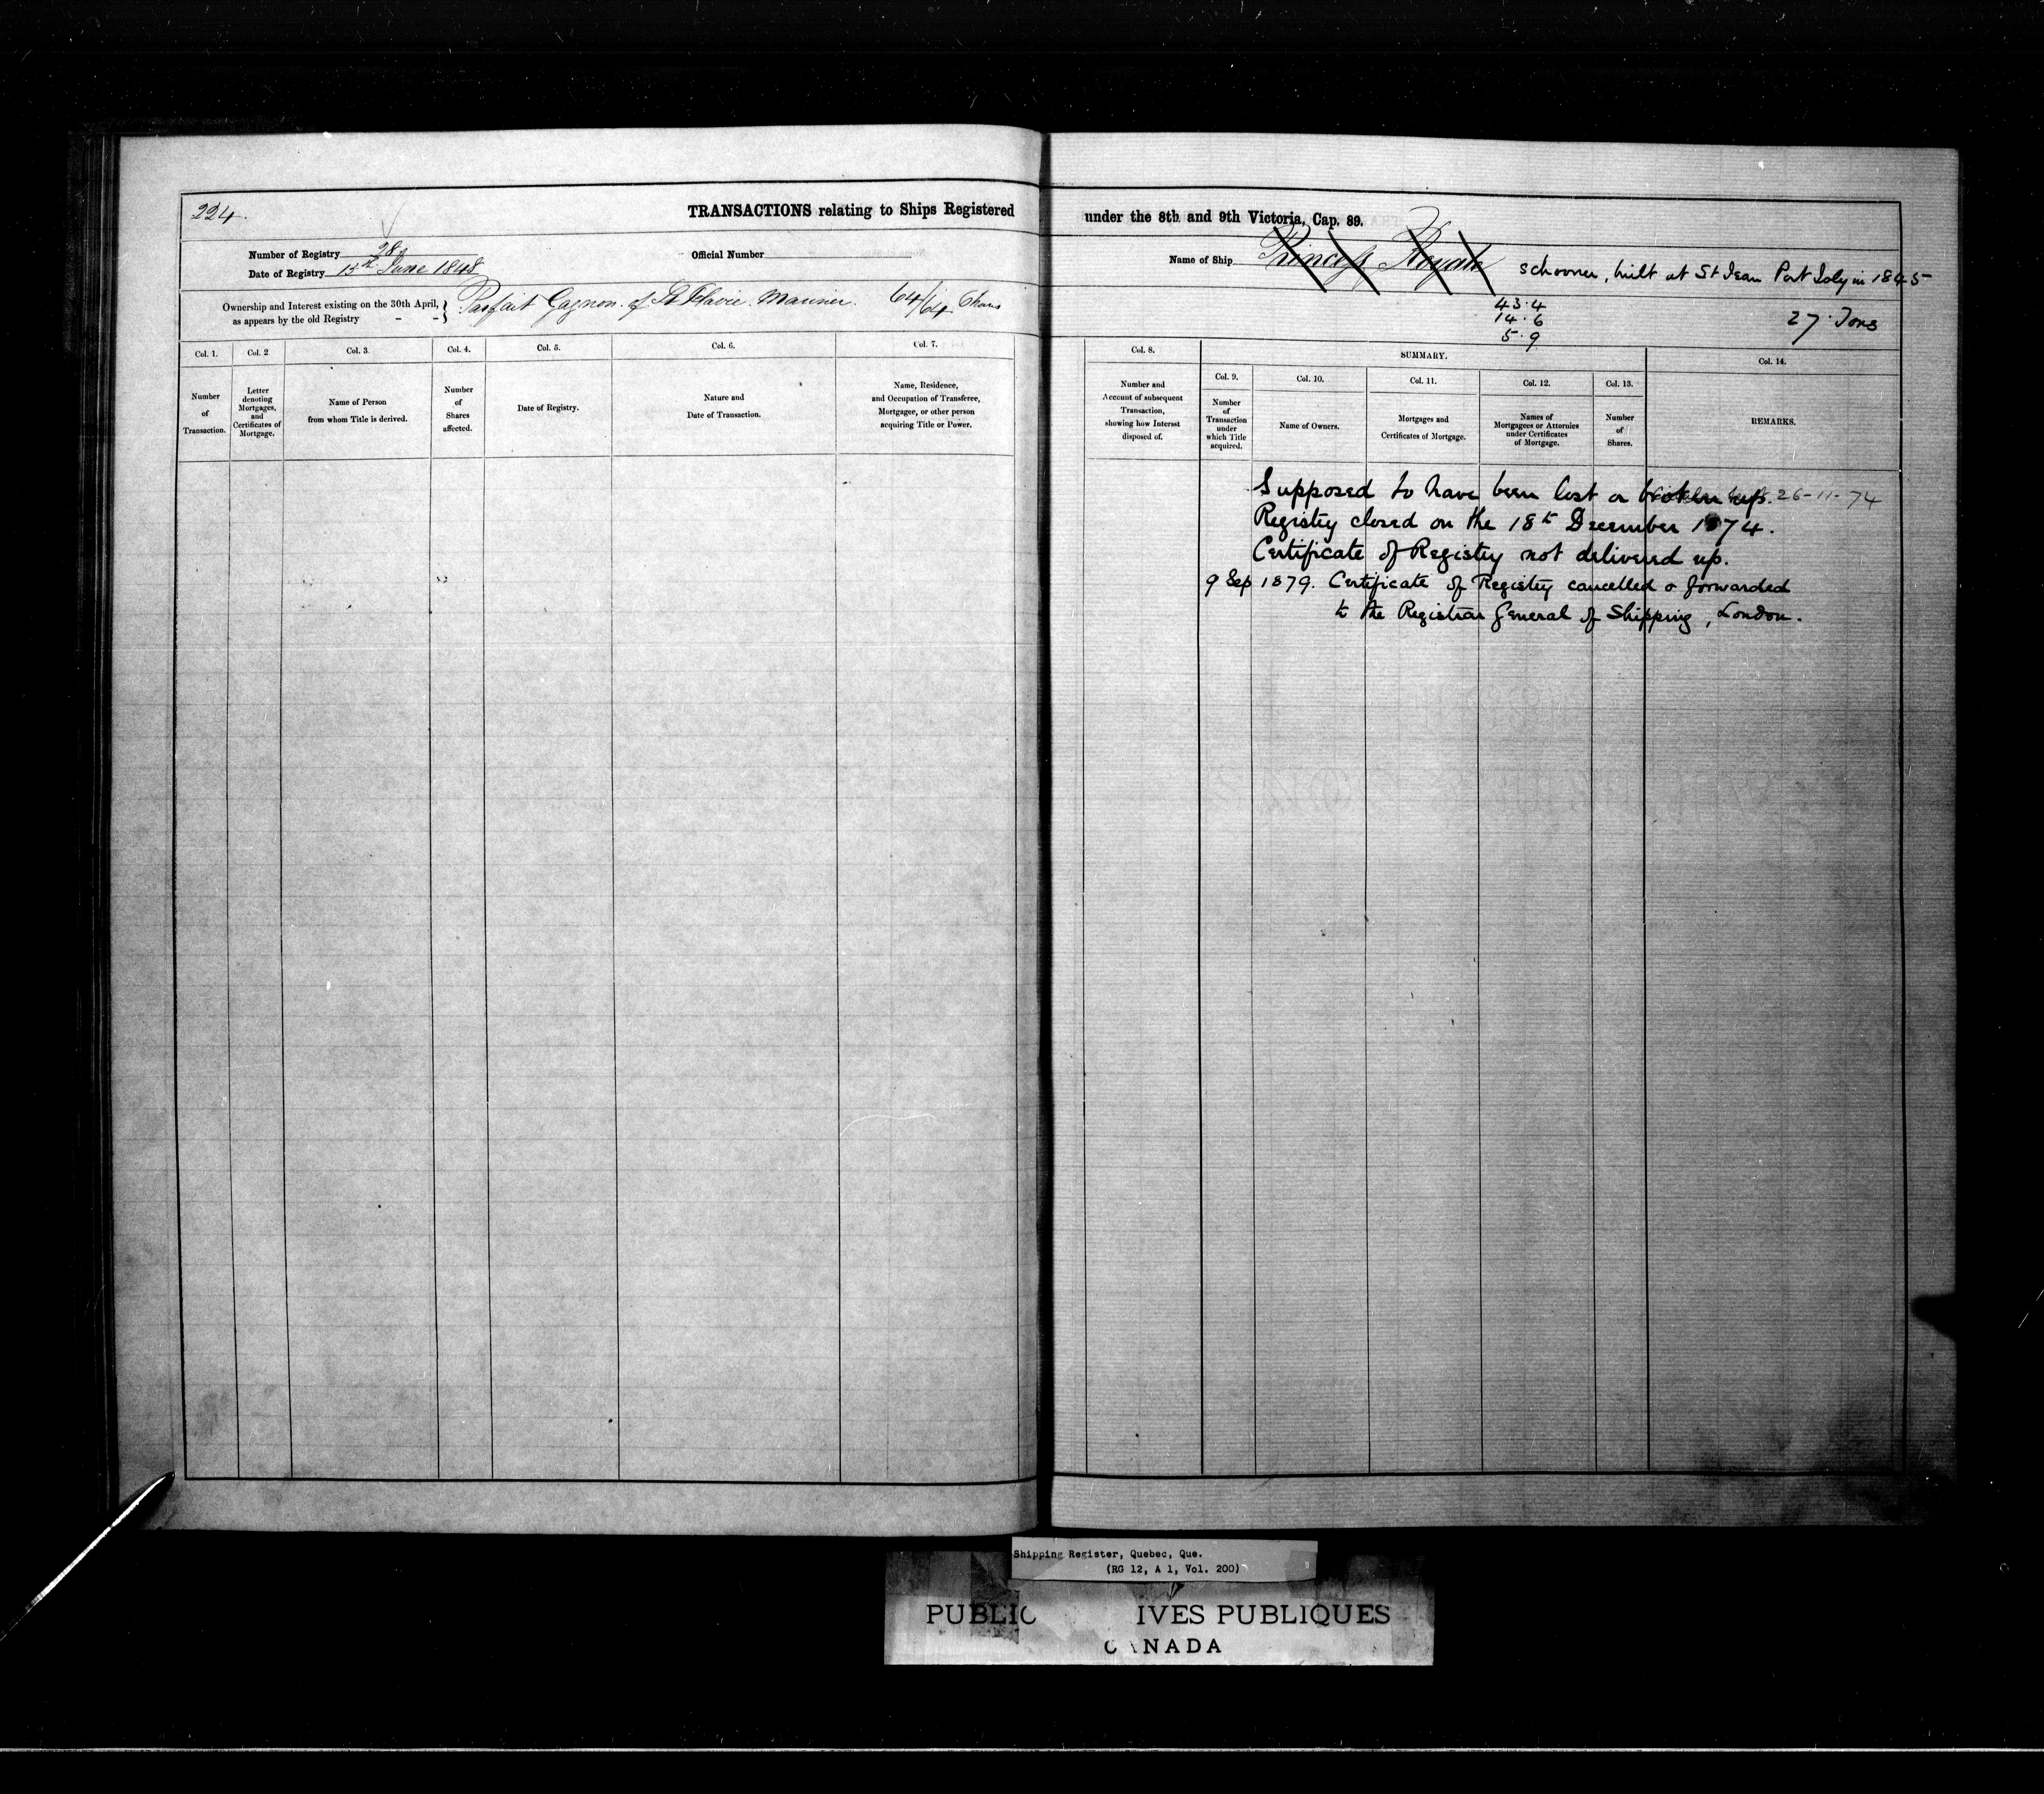 224.
TRANSACTIONS relating to Ships Registered under the 8th and 9th Victoria, Cap. 89.
Number of Registry 28
Official Number
Name of Ship Princess Royal schooner, built at St Jean Port Joly in 1845
Date of Registry 15th June 1848
Ownership and Interest existing on the 30th April,
as appears by the old Registry - - } Parfait Gagnon of St Flavie Mariner 64/64 Shares
43.4
14.6
5.9
27 Tons
Col. 1.
Number
of
Transaction.
Col. 2
Letter
denoting
Mortgages,
and
Certificates of
Mortgage.
Col. 3.
Name of Person
from whom Title is derived.
Col. 4.
Number
of
Shares
affected.
Col. 5.
Date of Registry.
Col. 6.
Nature and
Date of Transaction.
Col. 7.
Name, Residence,
and Occupation of Transferee,
Mortgagee, or other person
acquiring Title or Power.
Col. 8.
Number and
Account of subsequent
Transaction,
showing how Interest
disposed of.
SUMMARY.
Col. 9.
Number
of
Transaction
under
which Title
acquired.
Col. 10.
Name of Owners.
Col. 11.
Mortgages and
Certificates of Mortgage.
Col. 12.
Names of
Mortgagees or Attornies
under Certificates
of Mortgage.
Col. 13.
Number
of
Shares.
Col. 14.
REMARKS.
Supposed to have been lost or broken up. 26-11-74
Registry closed on the 18th December 1874.
Certificate of Registry not delivered up.
9 Sep 1879. Certificate of Registry cancelled & forwarded
to the Registrar General of Shipping, London.
Shipping Register, Quebec, Que.
(RG 12, A 1, Vol. 200)
PUBLIC IVES PUBLIQUES
CANADA